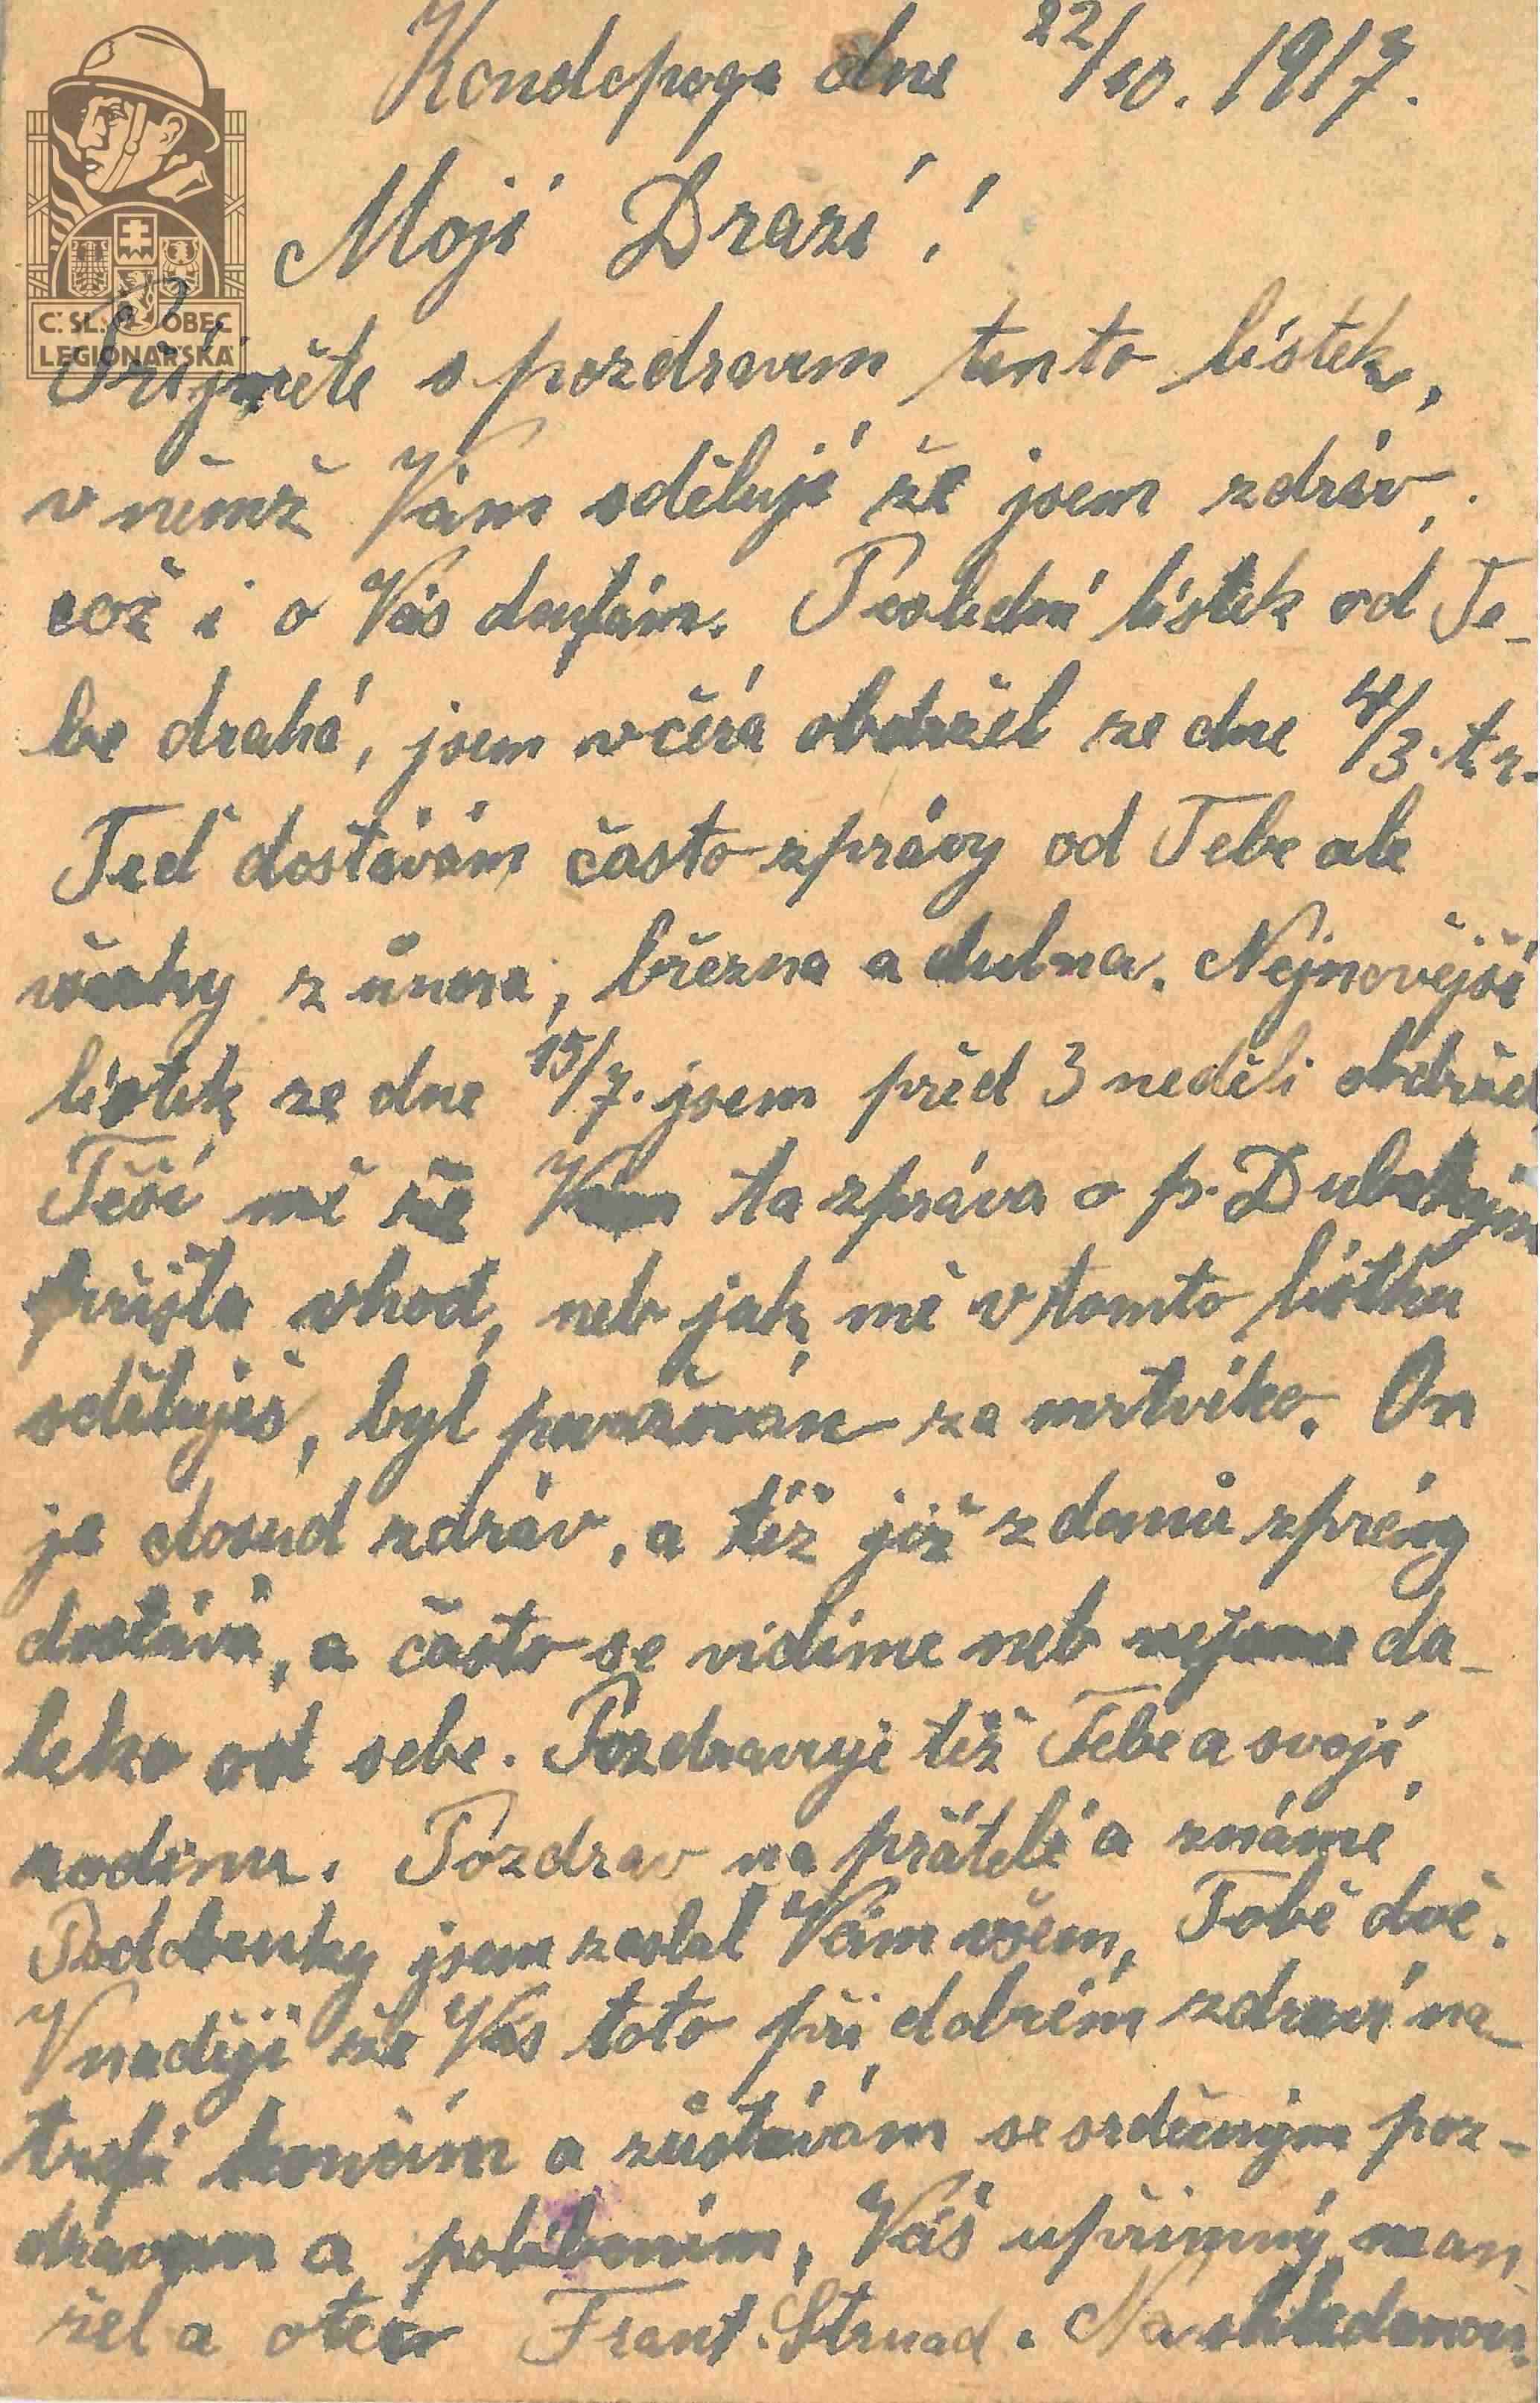 Kondopoga dne 22/10. 1917.
Moji Drazí!
Č. SL. OBEC
LEGIONÁŘSKÁ
Přijměte s pozdravem tento lístek,
v němž Vám sděluji že jsem zdráv,
což i o Vás doufám. Poslední lístek od Te-
be drahá, jsem včera obdržel ze dne 4/3. t.r.
Teď dostávám často zprávy od Tebe ale
všechy z února, března a dubna. Nejnovější
lístek ze dne 15/7. jsem před 3 neděli obdržel
Těší mě že Vám ta zpráva o p. Dubskym
přišla vhod, neb jak mě v tomto lístku
sděluješ, byl považován za mrtvého. On
je dosud zdráv, a též již z domů zprávy
dostává, a často se vidíme neb nejsme da-
leko od sebe. Pozdravuje též Tebe a svojí
rodinu. Pozdrav na přátelé a známé
jsem zaslal Vám všem, Tobě dvě.
V naději že Vás toto při dobrém zdraví na-
trefí končím a zůstávám se srdečným poz-
dravem a políbením, Váš upřímný man-
žel a otec Frant. Strnad. Na shledanou.